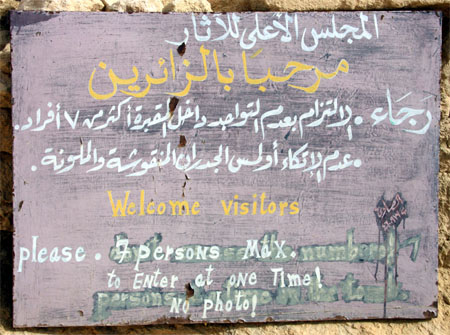 المجلس الأعلى للآثار
مرحبًا بالزائرين
رجاء . الالتزام بعدم التواجد داخل المقبرة أكثر من ٧ أفراد.
. عدم الإتكاء أو لمس الجدران المنقوشة والملونة.
Welcome visitors
please . 7 persons Max.
to Enter at one Time!
No photo!